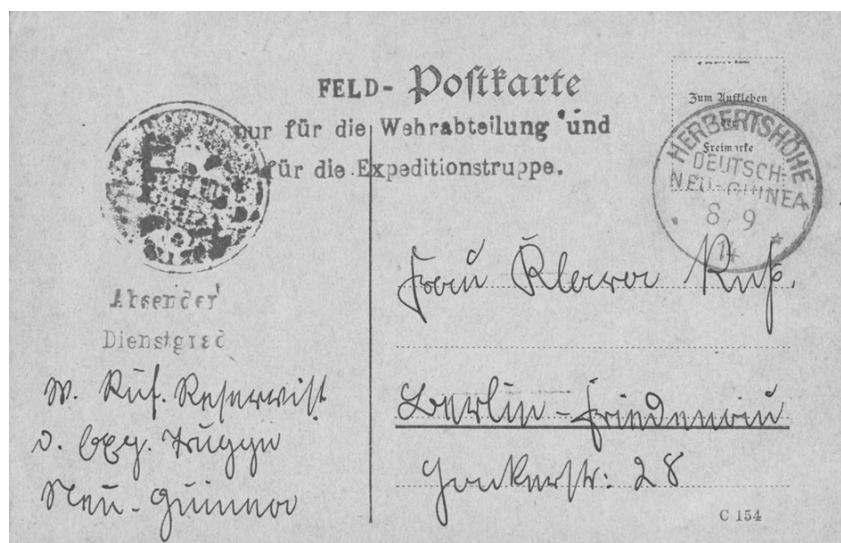 FELD- Postkarte
nur für die Wehrabteilung und
für die Expeditionstruppe.
Zum Aufkleben
der
Freimarke
HERBERTSHÖHE
DEUTSCH-
NEU-GUINEA
8 9
14
Absender
Dienstgrad
W. Ruf. Reservist
d. Exp. Truppe
Neu-Guinea
Frau Klara Ruf.
Berlin-Friedenau
28
C 154